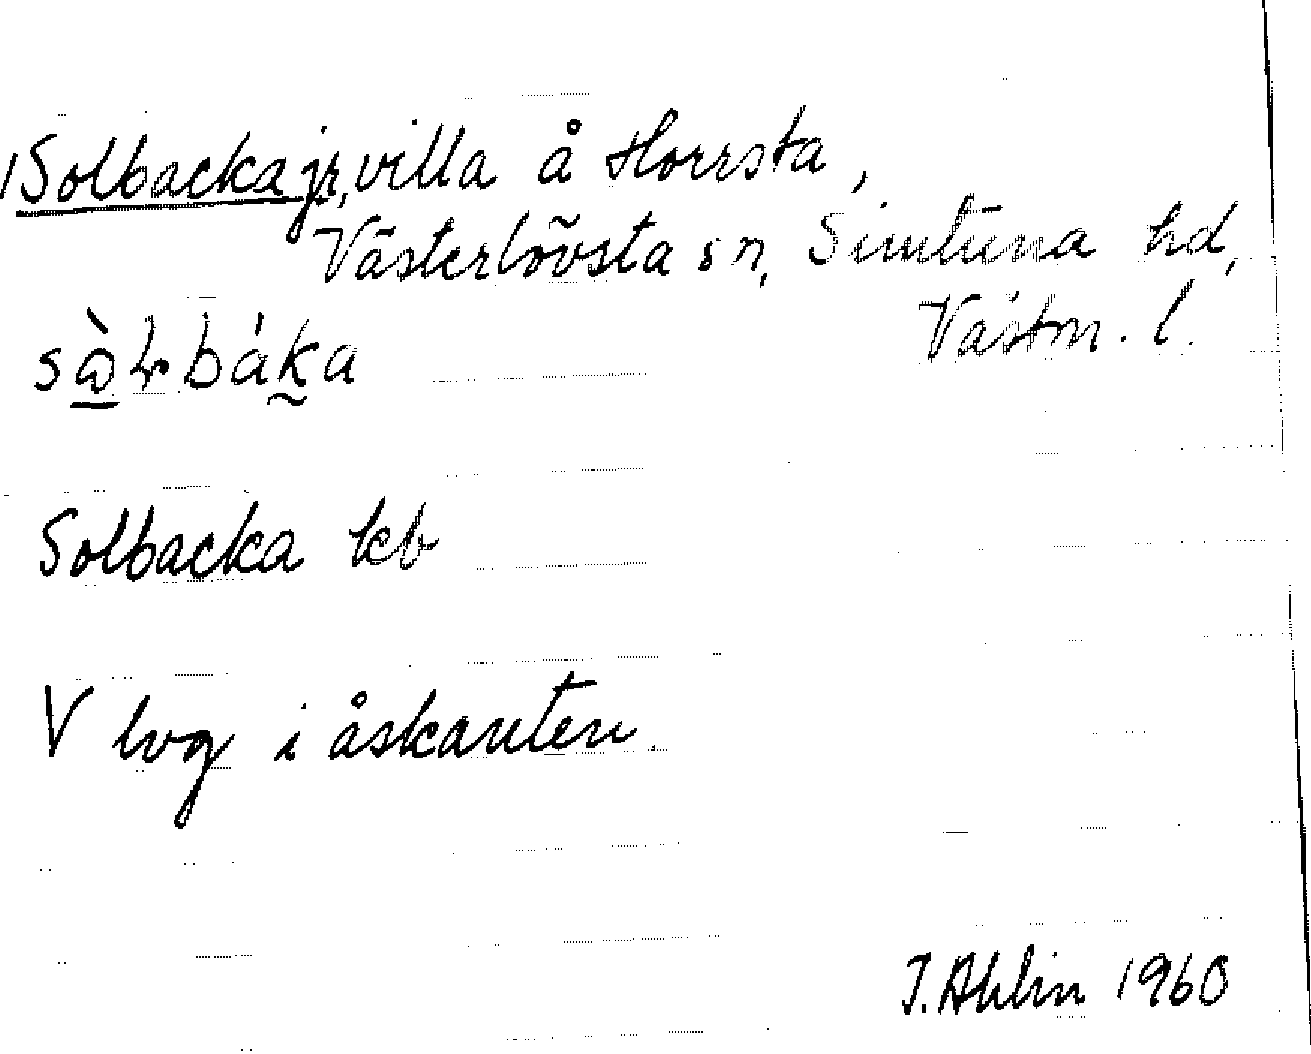 Solbacka jr, villa å Horrsta,
Västerlövsta sn, Simtuna hd,
Västm. l.
Solbacka kb
V bvg i åskanten.
J. Ahlin 1960